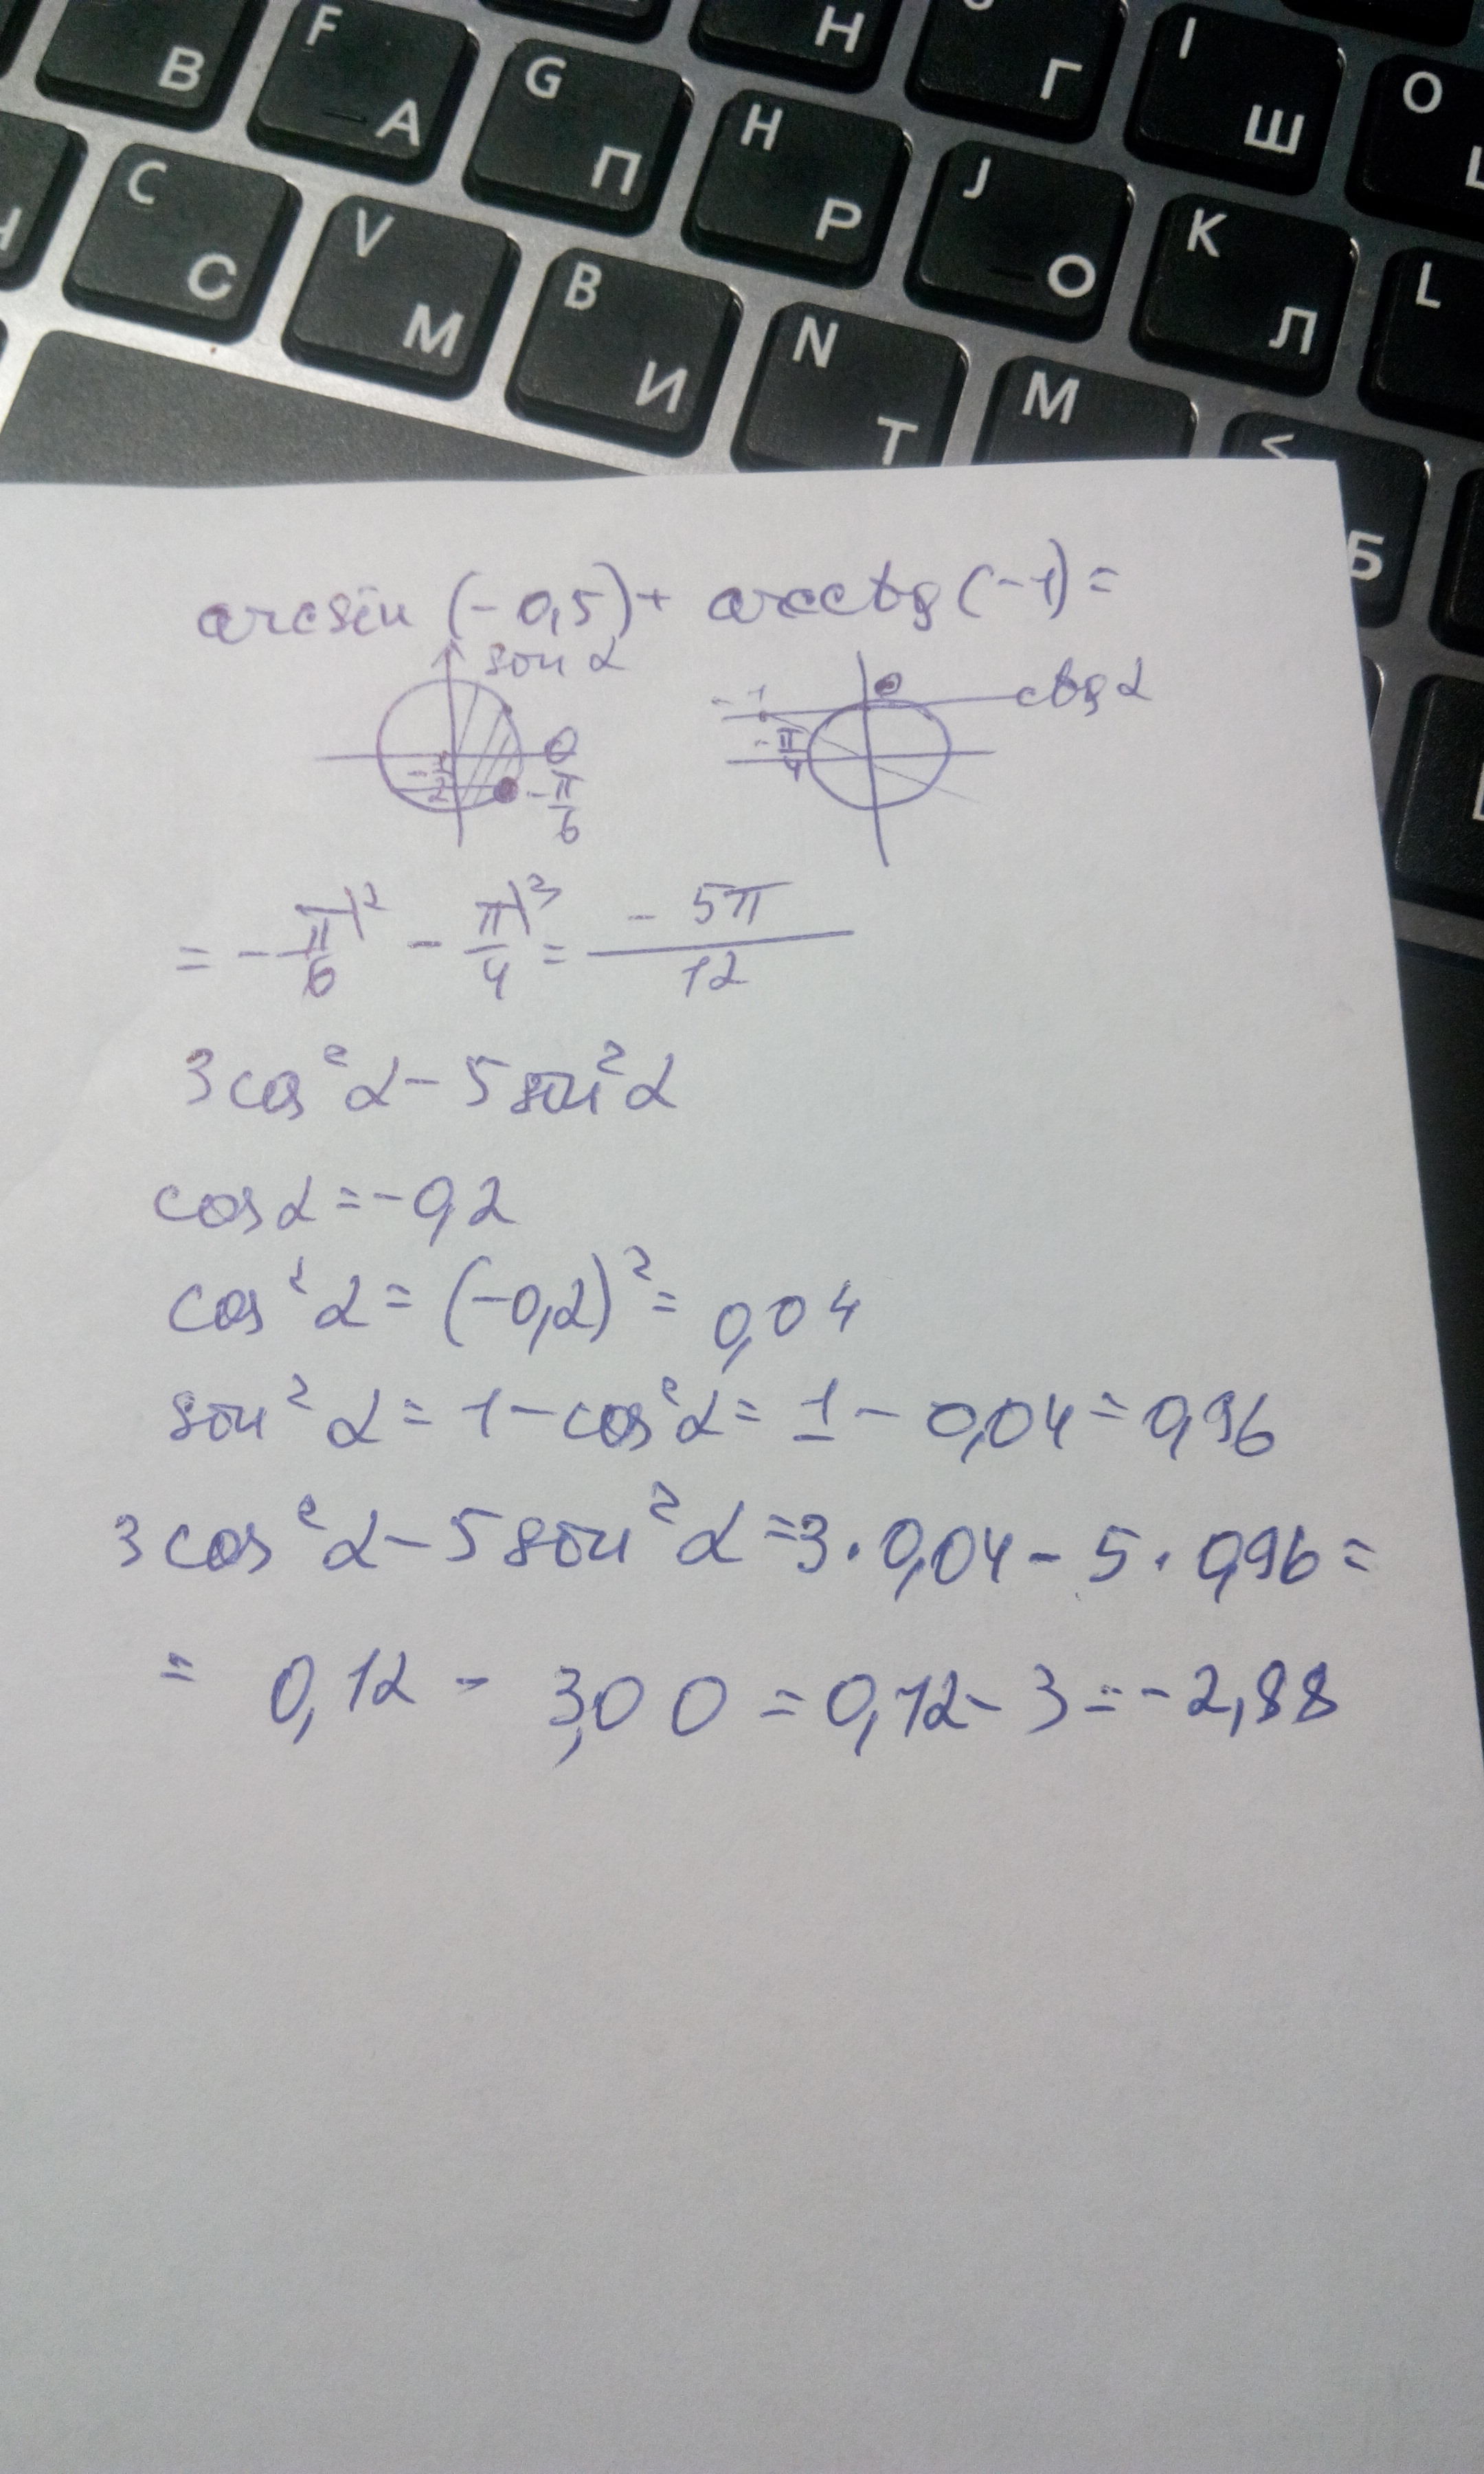 В
F А
G П
Н
Г
I Ш
O
C С
V М
H Р
J О
K Л
L
B И
N Т
M
<
Б
arcsin (-0,5) + arcctg (-1) =
sin α
ctg α
-1
0
-1/2
-π/6
-π/4
= -π/6 |2 - π/4 |3 = -5π/12
3 cos² α - 5 sin² α
cos α = -0,2
cos² α = (-0,2)² = 0,04
sin² α = 1 - cos² α = 1 - 0,04 = 0,96
3 cos² α - 5 sin² α = 3 · 0,04 - 5 · 0,96 =
= 0,12 - 3,00 = 0,12 - 3 = -2,88